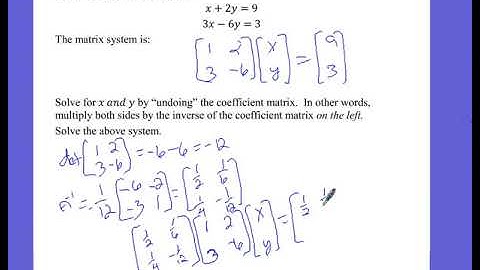 x + 2y = 9
3x − 6y = 3
The matrix system is:
[1 2; 3 -6] [x; y] = [9; 3]
Solve for x and y by “undoing” the coefficient matrix. In other words,
multiply both sides by the inverse of the coefficient matrix on the left.
Solve the above system.
det [1 2; 3 -6] = -6 - 6 = -12
A⁻¹ = -1/12 [-6 -2; -3 1] = [1/2 1/6; 1/4 -1/12]
[1/2 1/6; 1/4 -1/12] [1 2; 3 -6] [x; y] = [1/2